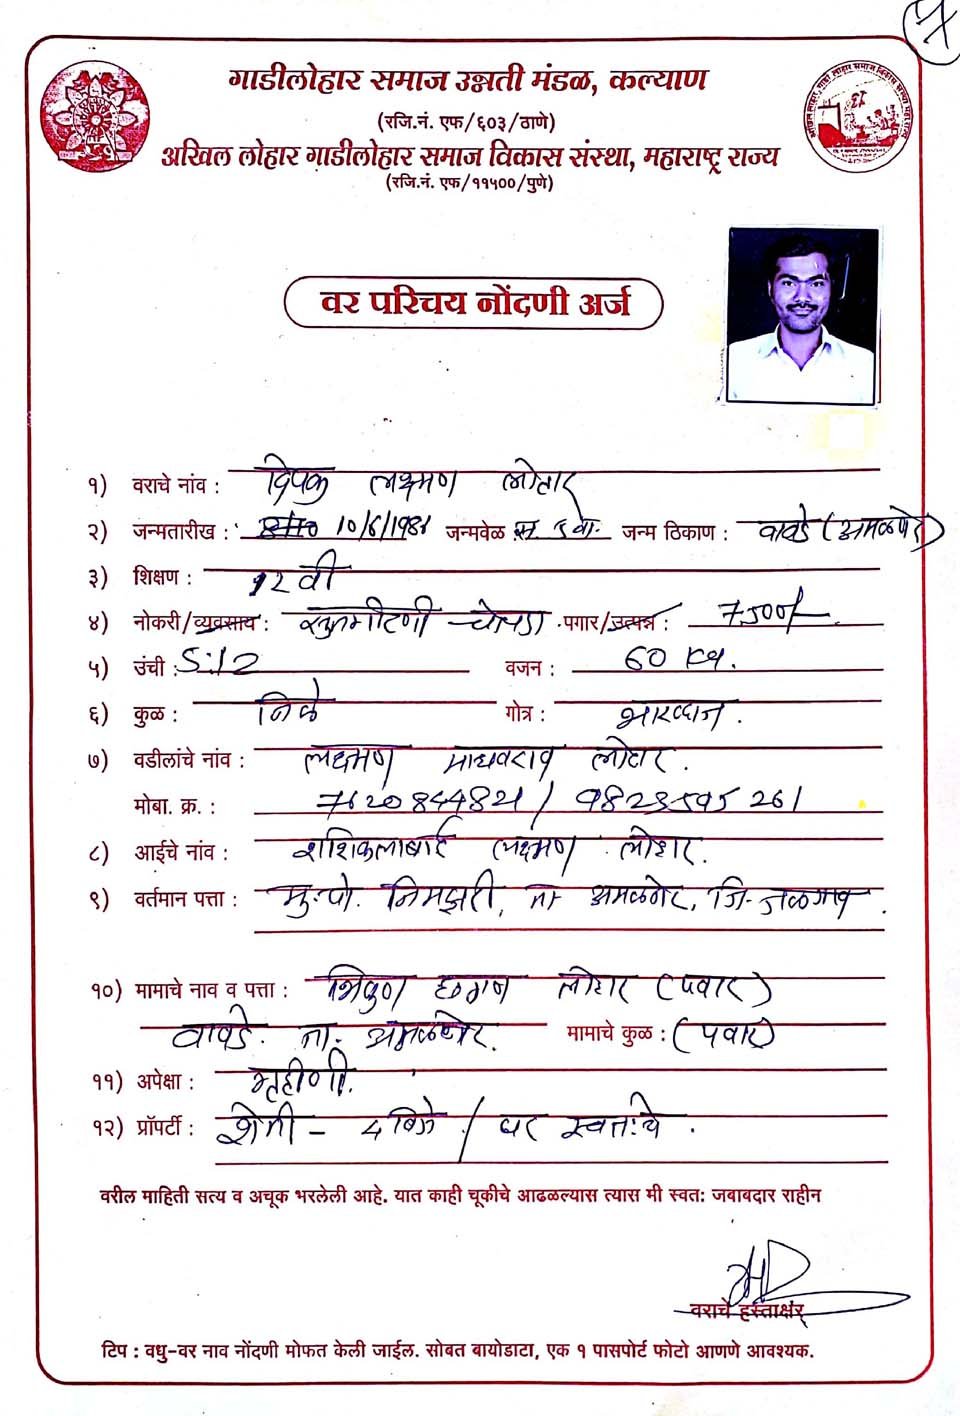 गाडीलोहार समाज उन्नती मंडळ, कल्याण
(रजि.नं. एफ/६०३/ठाणे)
अखिल लोहार गाडीलोहार समाज विकास संस्था, महाराष्ट्र राज्य
(रजि.नं. एफ/११५००/पुणे)
वर परिचय नोंदणी अर्ज
१) वराचे नांव : दिपक लक्ष्मण लोहार
२) जन्मतारीख : 10/6/198 जन्मवेळ जन्म ठिकाण : वावडे (अमळनेर)
३) शिक्षण : 12 वी
४) नोकरी/व्यवसाय : पगार/उत्पन्न : 7500/-
५) उंची : 5:12 वजन : 60 Kg.
६) कुळ : निके गोत्र : भारव्दाज.
७) वडीलांचे नांव : लक्ष्मण माधवराव लोहार.
मोबा. क्र. : 7620844821 / 9823595261
८) आईचे नांव : शशिकलाबाई लक्ष्मण लोहार.
९) वर्तमान पत्ता : मु.पो. निमझरी, ता अमळनेर, जि-जळगाव.
१०) मामाचे नाव व पत्ता : भिकन छगन लोहार (पवार)
वावडे. ता. अमळनेर. मामाचे कुळ : (पवार)
११) अपेक्षा : गृहीणी.
१२) प्रॉपर्टी : शेती - 4 बिघे / घर स्वतःचे.
वरील माहिती सत्य व अचूक भरलेली आहे. यात काही चूकीचे आढळल्यास त्यास मी स्वतः जबाबदार राहीन
वराचे हस्ताक्षर
टिप : वधु-वर नाव नोंदणी मोफत केली जाईल. सोबत बायोडाटा, एक १ पासपोर्ट फोटो आणणे आवश्यक.